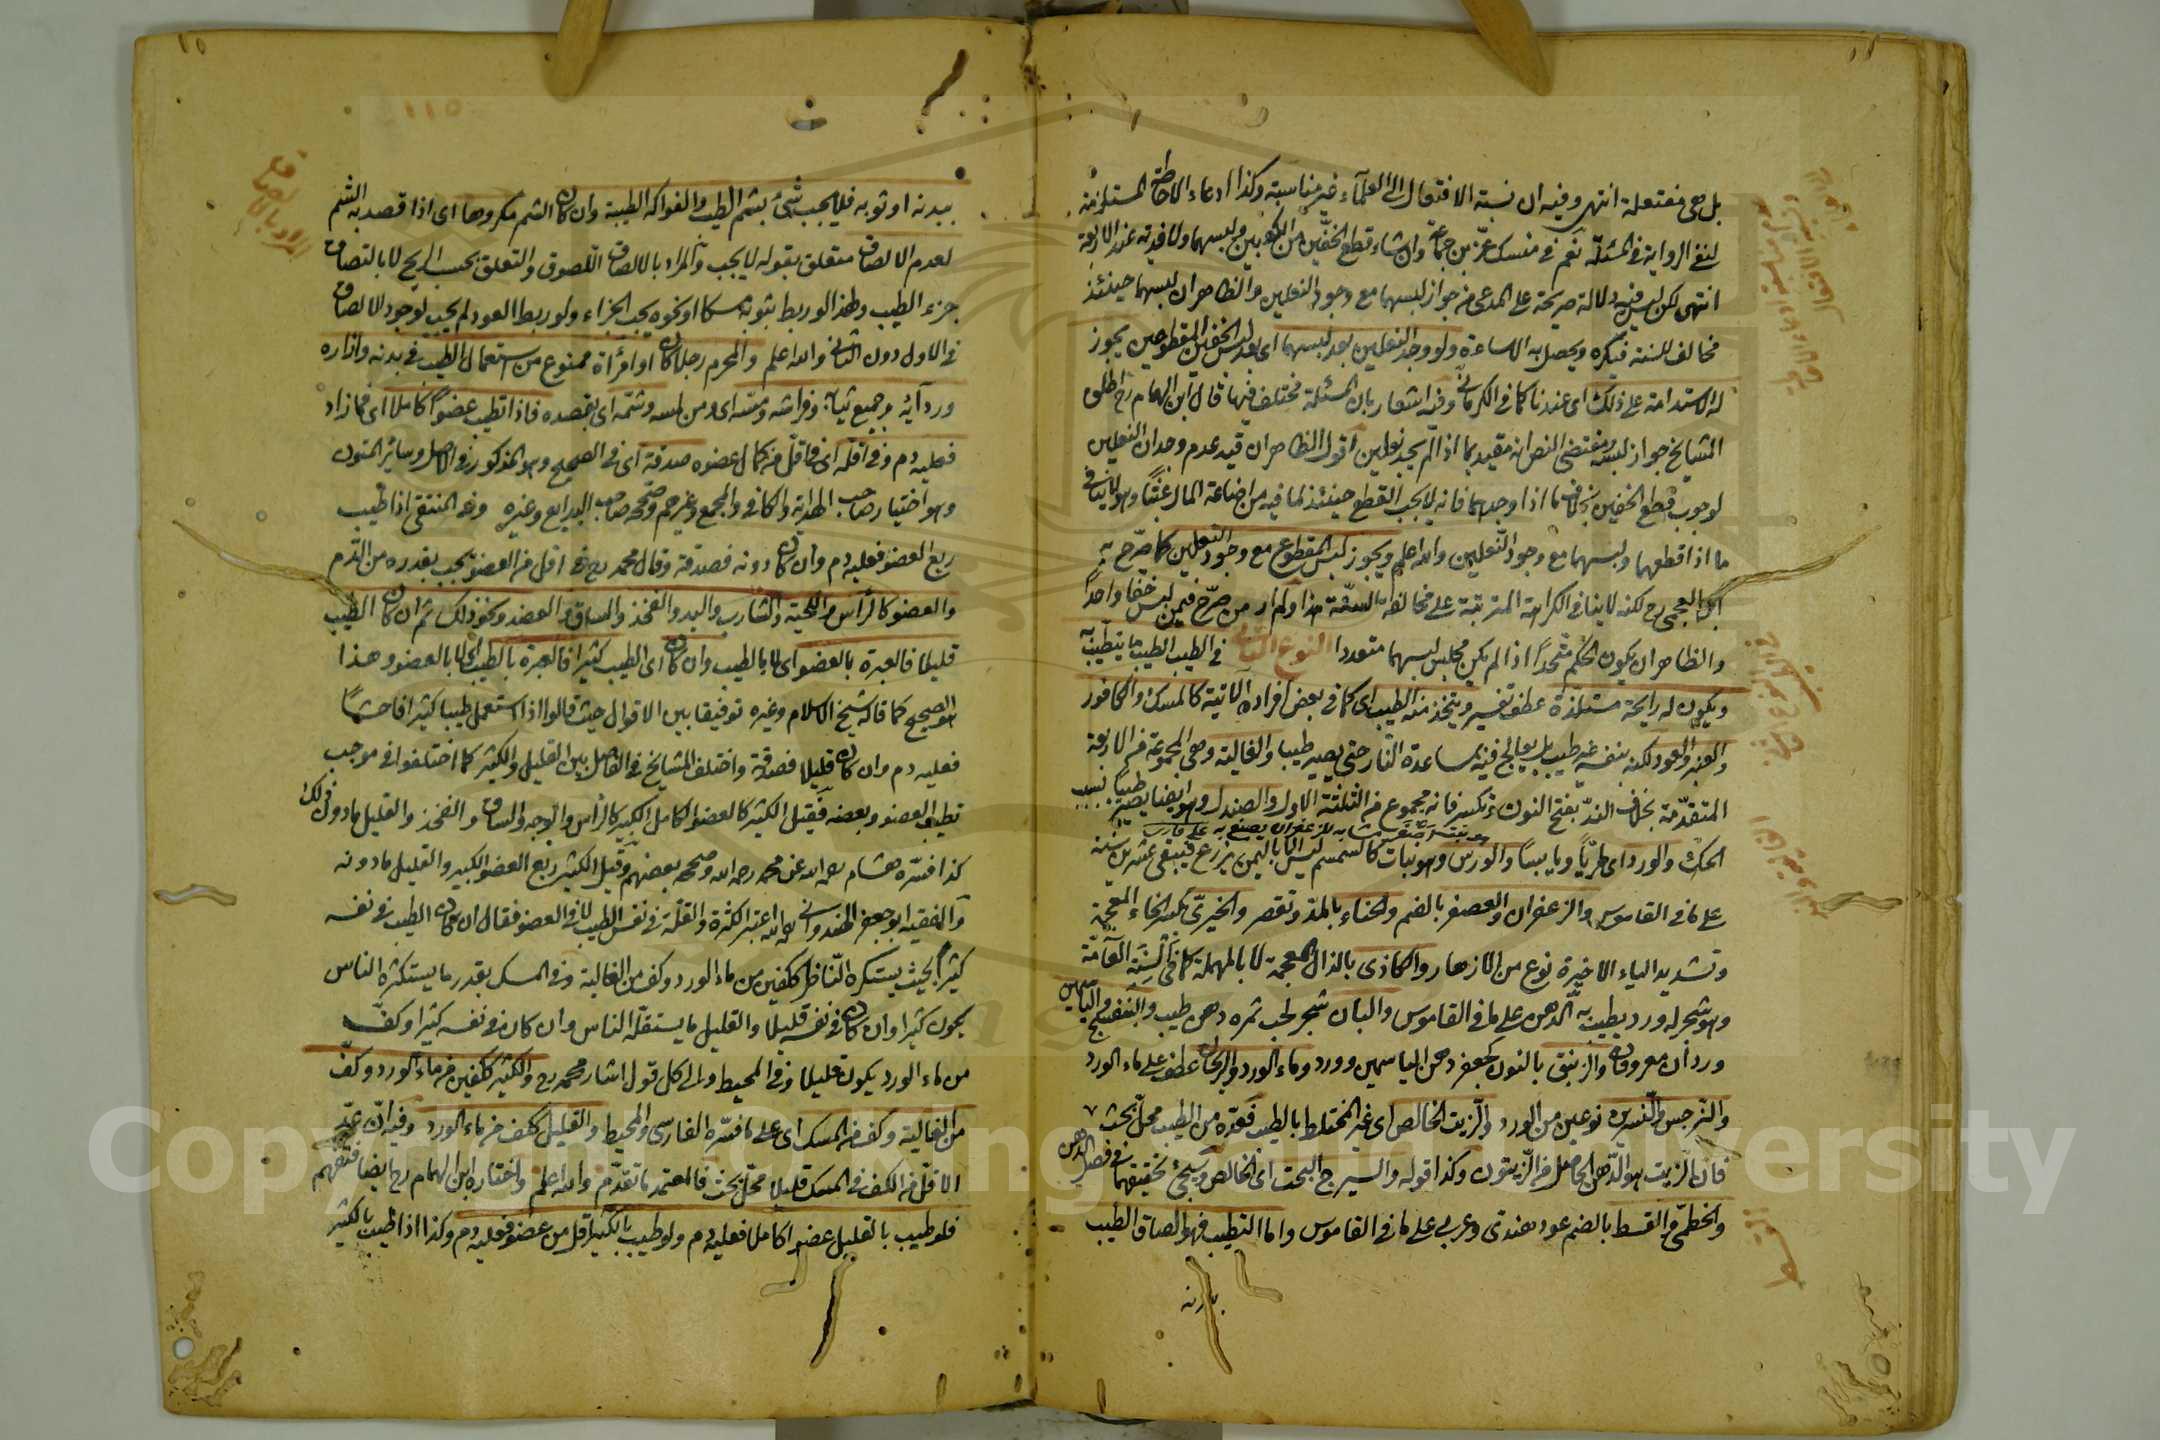 بل هي مفتعلة انتهى وفيه ان نسبة الافتعال الى العلماء غير مناسبة وكذا ادعاء الاحاطة المستلزمة
لنفي الرواية في المسئلة نعم في منسك عز بن جماعة وان شاء قطع الخفين من الكعبين ولبسهما ولا فدية عند الاربعة
انتهى لكن ليس فيه دلالة صريحة على المدعى من جواز لبسهما مع وجود النعلين والظاهر ان لبسهما حينئذ
مخالف للسنة فيكره ويحصل به الاساءة ولو وجد النعلين بعد لبسهما اى بعد لبس الخفين المقطوعين يجوز
له الاستدامة على ذلك اى عندنا كما في الكرماني وفيه اشعار بان المسئلة مختلف فيها قال ابن الهمام رح اطلق
المشايخ جواز لبسه ومقتضى النص انه مقيد بما اذا لم يجد نعلين اقول الظاهر ان قيد عدم وجدان النعلين
لوجوب قطع الخفين بخلاف ما اذا وجدهما فانه لا يجب القطع حينئذ لما فيه من اضاعة المال عبثا وهو لا ينافي
ما اذا قطعهما ولبسهما مع وجود النعلين والله اعلم ويجوز لبس المقطوع مع وجود النعلين كما صرح به
ابن العجمي رح لكنه لا ينافي الكراهة المترتبة على مخالفة السنة هذا ولم ار من صرح فيمن لبس خفا واحدا
والظاهر ان يكون الحكم متحدا اذا لم يكن مجلس لبسهما متعددا النوع الثاني في الطيب الطيب ما يتطيب به
ويكون له رايحة مستلذة عطف تفسير ويتخذ منه الطيب اى كما في بعض افراده الاتية كالمسك والكافور
والعنبر والعود لكنه بنفسه غير طيب بل يعالج فيه بمساعدة النار حتى يصير طيبا والغالية وهى المجموعة من الاربعة
المتقدمة بخلاف الند بفتح النون وتكسر فانه مجموع من الثلثة الاول والصندل وهو ايضا يصير طيبا بسبب
الحك والورد اى طريا ويابسا والورس وهو نبات كالسمسم ليس الا باليمن يزرع فيبقى عشرين سنة
على ما في القاموس والزعفران والعصفر بالضم والحناء بالمد وتقصر والخيري بكسر الخاء المعجمة
وتشديد الياء الاخيرة نوع من الازهار والكاذى بالذال المعجمة لا بالمهملة كما في السنة العامة
وهو شجر له ورد يطيب به الدهن على ما في القاموس والبان شجر لحب ثمره دهن طيب والبنفسج والياسمين
وردان معروفان والزنبق بالنون كجعفر دهن الياسمين وورد وماء الورد والريحان عطف على ماء الورد
والنرجس والنسرين نوعين من الورد والزيت الخالص اى غير المختلط بالطيب فعده من الطيب محل بحث
فان الزيت هو الدهن الحاصل من الزيتون وكذا قوله والسيرج البحت اى الخالص وسيجئ تحقيقهما في فصل الدهن
والخطمى والقسط بالضم عود هندى وعربى على ما في القاموس واما التطيب فهو الصاق الطيب
ببدنه
ببدنه او ثوبه فلا يجب شئ بشم الطيب والفواكه الطيبة وان كان الشم مكروها اى اذا قصد به الشم
لعدم الالصاق متعلق بقوله لا يجب والمراد بالالصاق اللصوق والتعلق بحسب الريح لا بالتصاق
جزء الطيب ولهذا لو ربط بثوبه مسكا او نحوه يجب الجزاء ولو ربط العود لم يجب لوجود الالصاق
في الاول دون الثاني والله اعلم والمحرم رجلا كان او امرأة ممنوع من استعمال الطيب في بدنه وازاره
وردآئه وجميع ثيابه وفراشه ومسه اى ومن لمسه وشمه اى بقصده فاذا تطيب عضوا كاملا اى فما زاد
فعليه دم وفي اقله اى في اقل من كمال عضوه صدقة اى في الصحيح وهو المذكور في الاصل وسائر المتون
وهو اختيار صاحب الهداية والكافي والمجمع وغيرهم وصححه صاحب البدايع وغيره وفي المنتقى اذا طيب
ربع العضو فعليه دم وان كان دونه فصدقة وقال محمد رح في اقل من العضو يجب بقدره من الدم
والعضو كالرأس واللحية والشارب واليد والفخذ والساق والعضد ونحو ذلك ثم ان كان الطيب
قليلا فالعبرة بالعضو اى لا بالطيب وان كان اى الطيب كثيرا فالعبرة بالطيب اى لا بالعضو وهذا
هو الصحيح كما قاله شيخ الاسلام وغيره توفيقا بين الاقوال حيث قالوا اذا استعمل طيبا كثيرا فاحشا
فعليه دم وان كان قليلا فصدقة واختلف المشايخ في الفاصل بين القليل والكثير كما اختلفوا في موجب
تطييب العضو وبعضه فقيل الكثير كالعضو الكامل الكبير كالرأس والوجه والساق والفخذ والقليل ما دون ذلك
كذا فسره هشام رحمه الله عن محمد رحمه الله وصححه بعضهم وقيل الكثير ربع العضو الكبير والقليل ما دونه
والفقيه ابو جعفر الهندواني رحمه الله اعتبر الكثرة والقلة في نفس الطيب لا في العضو فقال ان كان الطيب في نفسه
كثيرا بحيث يستكثره الناظر ككفين من ماء الورد وكف من الغالية وفي المسك بقدر ما يستكثره الناس
يكون كثيرا وان كان في نفسه قليلا والقليل ما يستقله الناس وان كان في نفسه كثيرا وكف
من ماء الورد يكون قليلا وفي المحيط والى كل قول اشار محمد رح والكثير ككفين من ماء الورد وكف
من الغالية وكف من المسك اى على ما فسره الفارسى والمحيط والقليل ككف من ماء الورد وفيه ان عد
الاقل من الكف في المسك قليلا محل بحث فالمعتمد ما تقدم والله اعلم واختار ابن الهمام رح ايضا
فلو طيب بالقليل عضوا كاملا فعليه دم ولو طيب بالكثير اقل من عضو فعليه دم وكذا اذا طيب بالكثير
Copyright © King Saud University